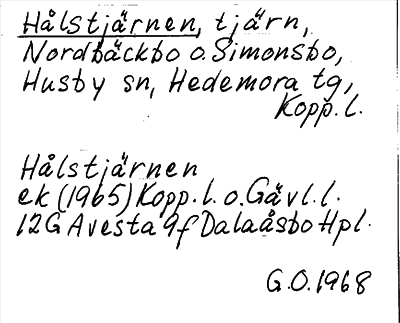 Hålstjärnen, tjärn,
Nordbäckbo o. Simonsbo,
Husby sn, Hedemora tg,
Kopp. l.
Hålstjärnen
ek (1965) Kopp. l. o. Gävl. l.
12G Avesta 9f Dalaåsbo Hpl.
G.O. 1968